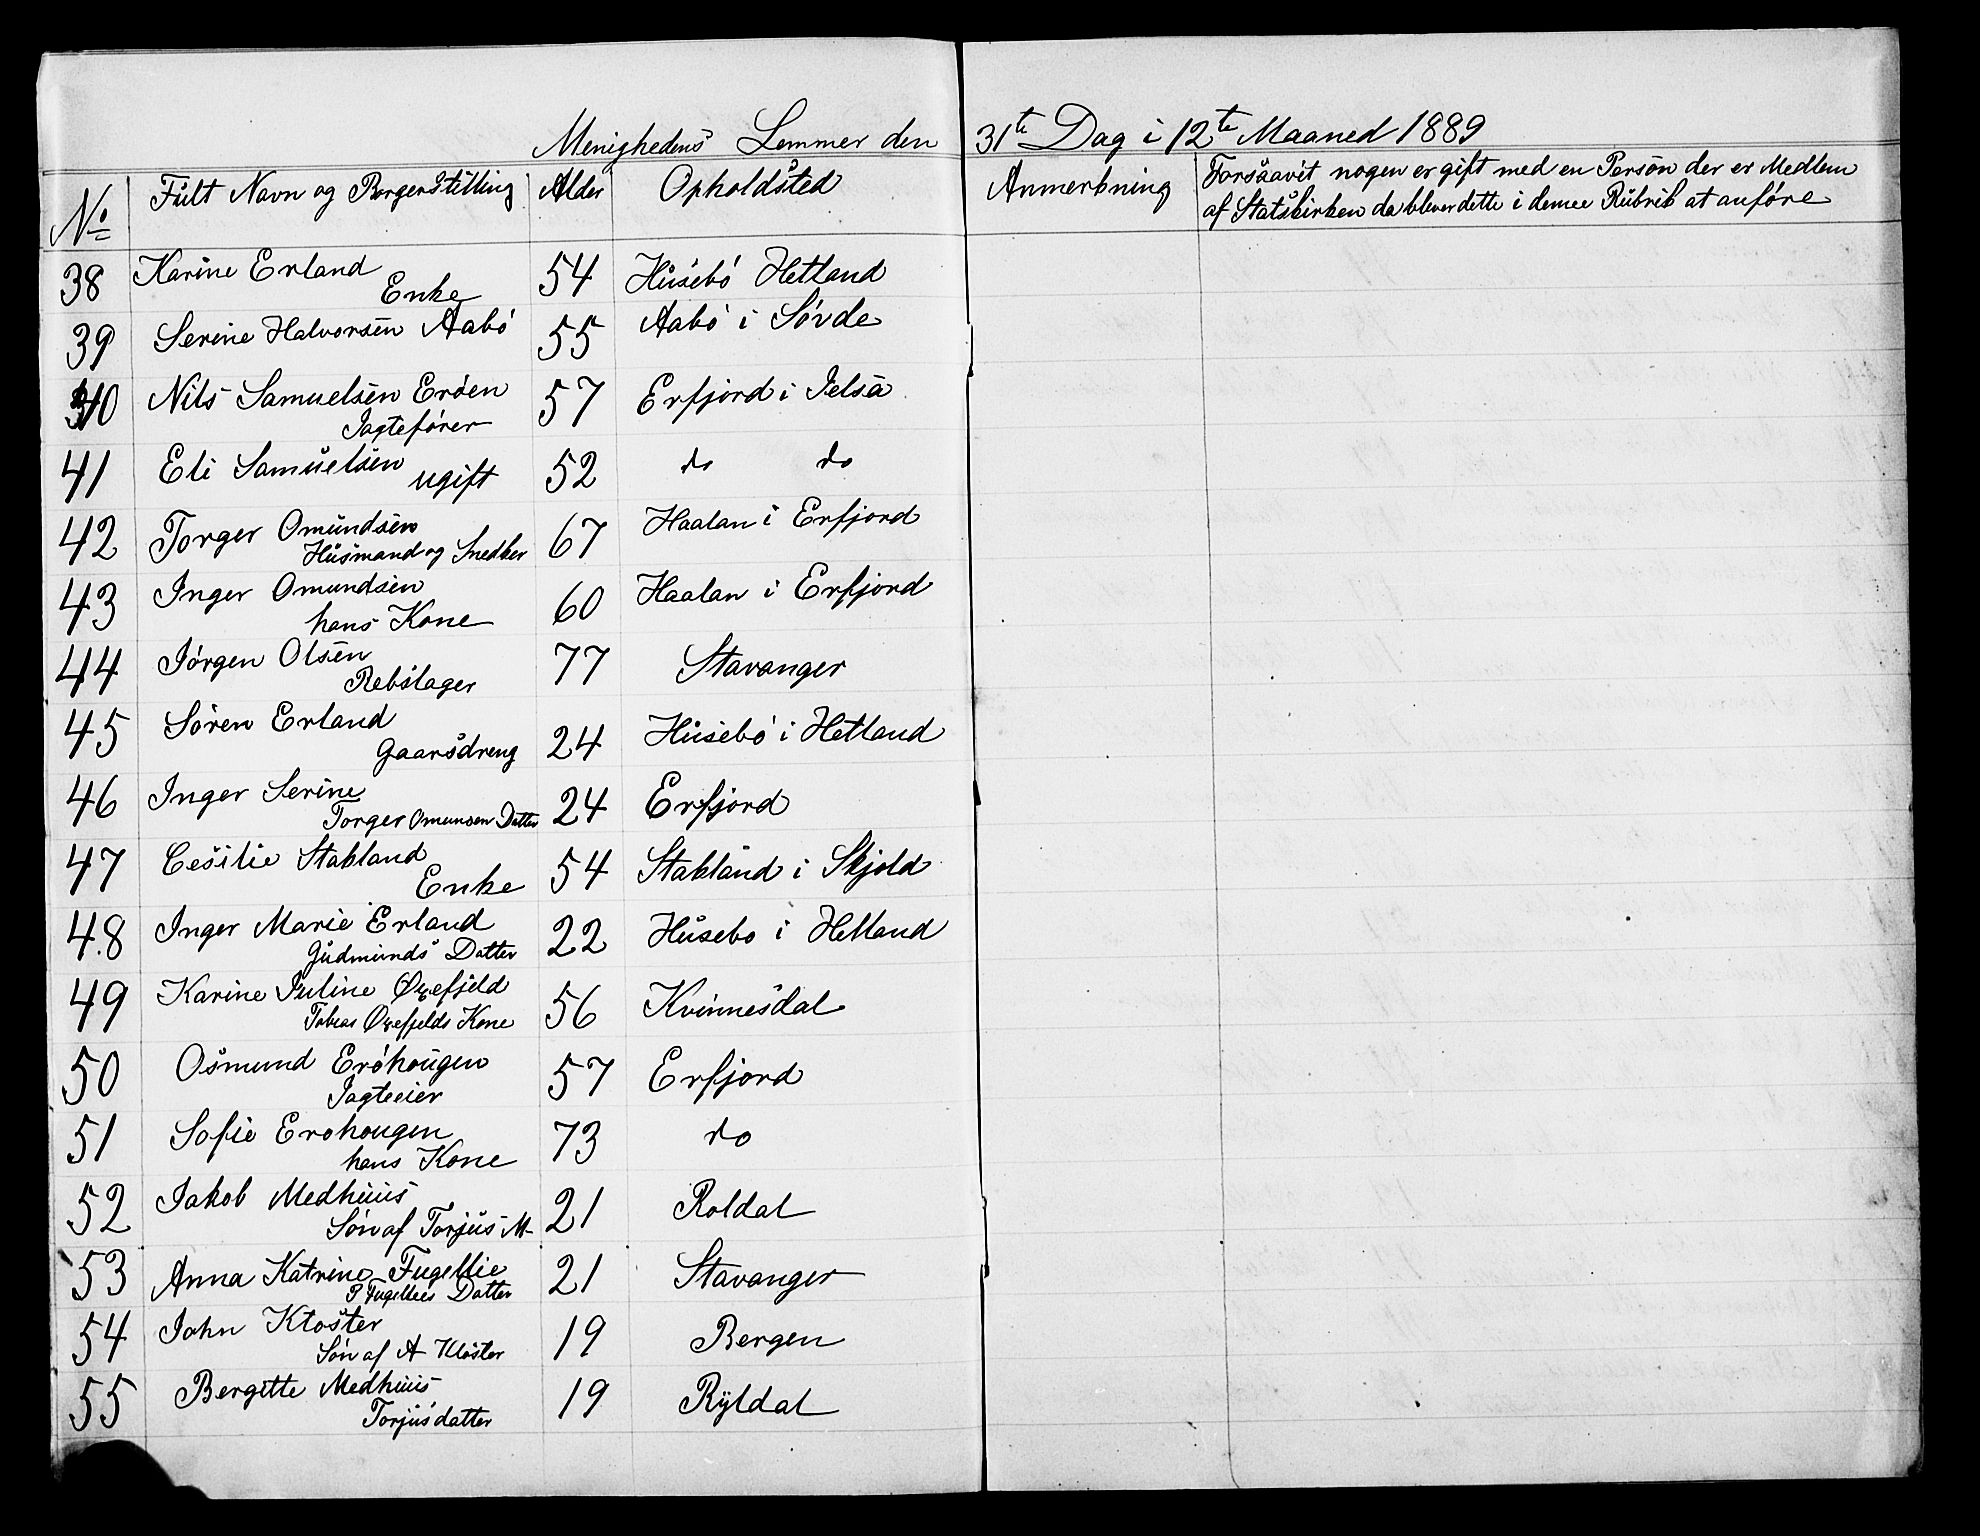 Menighedens Lemmer den 31te Dag i 12te Maaned 1889
No Fult Navn og Borgerstilling Alder Opholdsted Anmerkning Forsaavit nogen er gift med en Person der er Medlem
af Statskirken da blever dette i denne Rubrik at anføre
38 Karine Erland 54 Husebó Hetland
Enke
39 Serine Halvorsen Aabó 55 Aabó i Sóvde
40 Nils Samuelsen Eróen 57 Erfjord i Jelsa
Jagtefórer
41 Eli Samuelsen ugift 52 do do
42 Torger Omundsen 67 Haalan i Erfjord
Husmand og Snedker
43 Inger Omundsen 60 Haalan i Erfjord
hans Kone
44 Jórgen Olsen 77 Stavanger
Rebslager
45 Sóren Erland 24 Husebó i Hetland
Gaarsdreng
46 Inger Serine 24 Erfjord
Torger Omunsen Datter
47 Cesilie Stakland 54 Stakland i Skjold
Enke
48 Inger Marie Erland 22 Husebo i Hetland
Gudmunds Datter
49 Karine Juline Øxefjeld 56 Kvinnesdal
Tobias Øxefjelds Kone
50 Osmund Eróhougen 57 Erfjord
Jagteeier
51 Sofie Erohougen 73 do
hans Kone
52 Jakob Medhuus 21 Roldal
Són af Torjus M
53 Anna Katrine Fugellie 21 Stavanger
P Fugellies Datter
54 John Kloster 19 Bergen
Són af A Kloster
55 Bergitte Medhuus 19 Ryldal
Torjusdatter